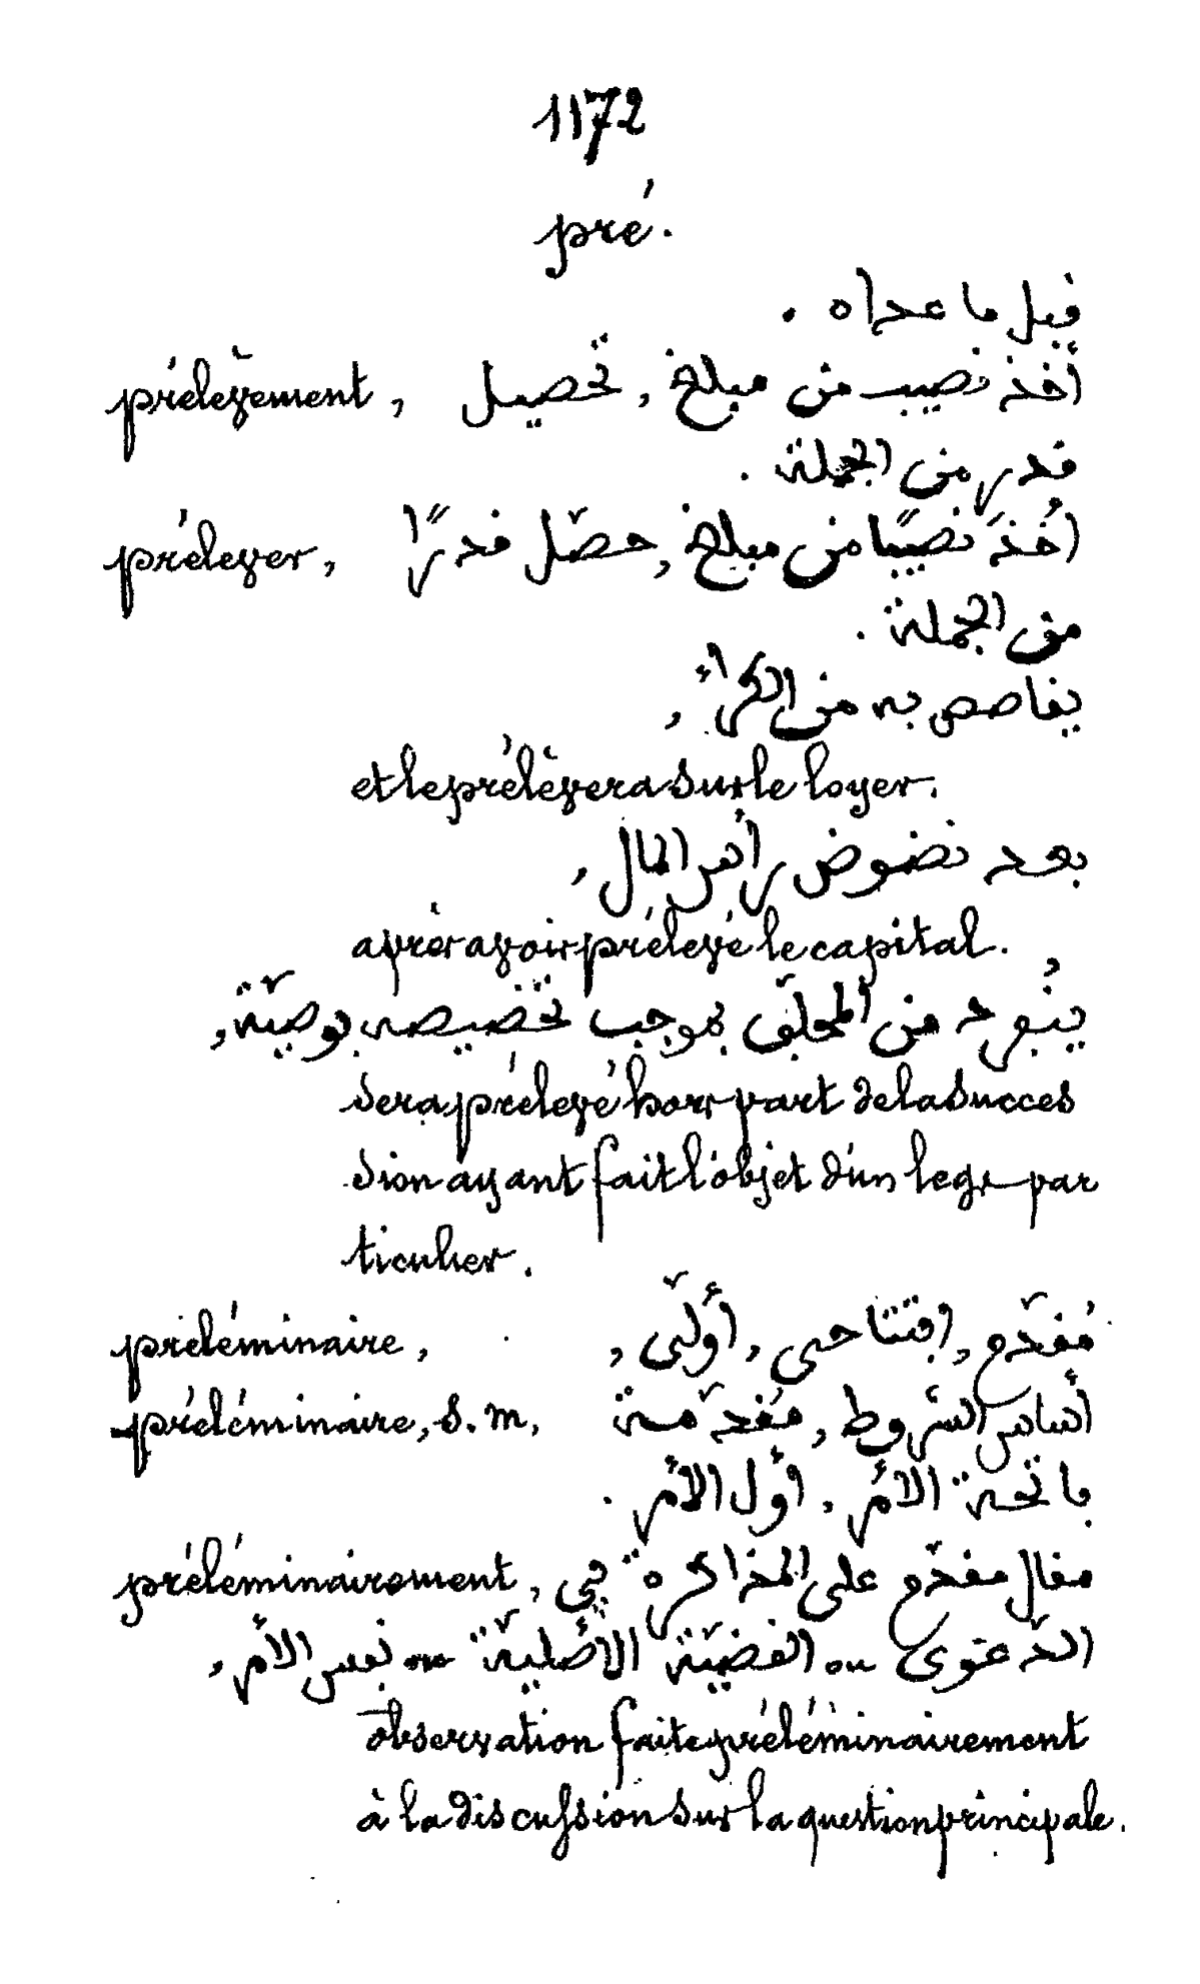 1172
pré.
قبل ما عداه .
prélèvement, أخذ نصيب من مبلغ, تحصيل
قدر من الجملة .
prélever, اُخذَ نصيبًا من مبلغ, حصّل قدرًا
من الجملة .
يقاصص به من الكراء,
et le prélèvera sur le loyer.
بعد نضوض رأس المال,
après avoir prélevé le capital.
ينفرد من المخلّف بموجب تخصيصه بوصيّة,
sera prélevé hors part de la succes
sion ayant fait l'objet d'un legs par
ticulier.
préléminaire, مُقدّم, افتتاحى, أوّلى,
préléminaire, s. m, أساس الشروط, مُقدّمة
فاتحة الأمر, أوّل الأمر .
préléminairement, مقال مقدّم على المذاكرة في
الدّعوى ou القضيّة الأصليّة ou نفس الأمر,
observation faite préléminairement
à la discussion sur la question principale.